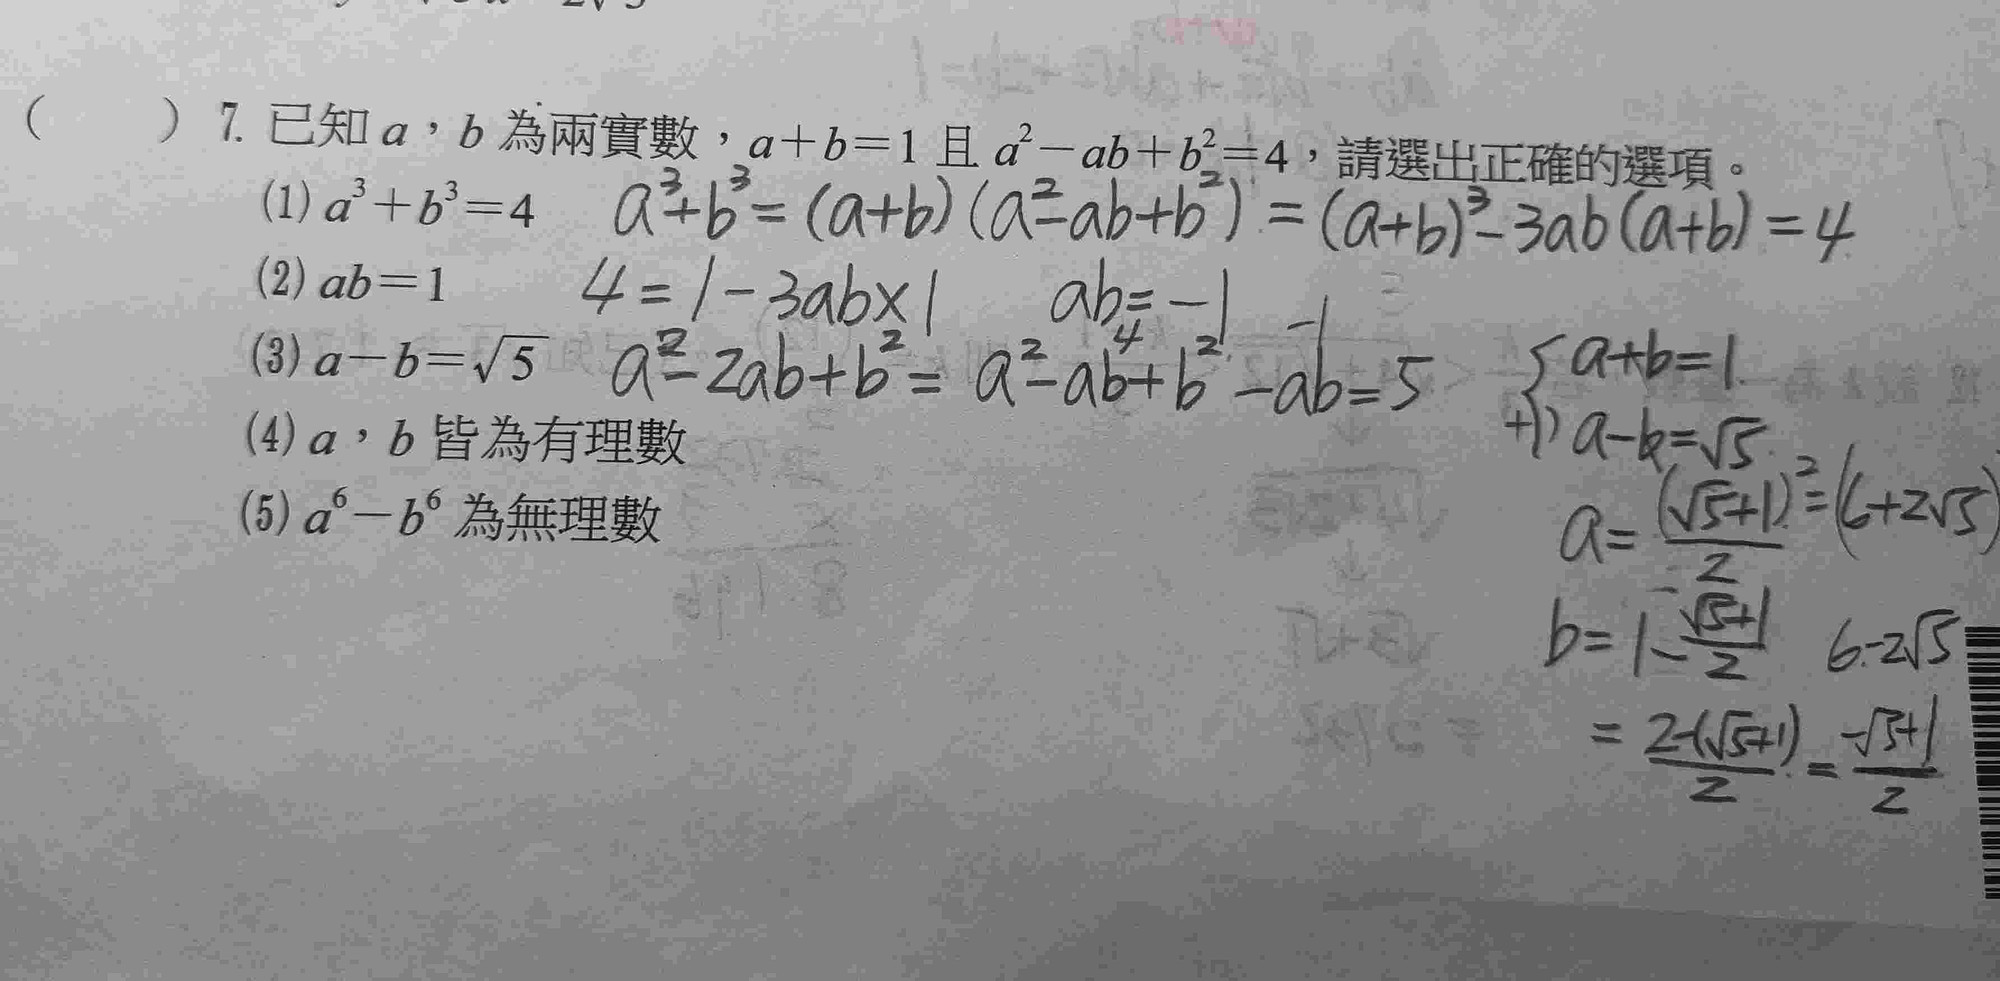 ( ) 7. 已知 a，b 為兩實數，a+b=1 且 a²-ab+b²=4，請選出正確的選項。
(1) a³+b³=4 a³+b³=(a+b)(a²-ab+b²)=(a+b)³-3ab(a+b)=4
(2) ab=1 4=1-3ab×1 ab=-1
(3) a-b=√5 a²-2ab+b²=a²-ab+b²-ab=5
4 -1
(4) a，b 皆為有理數
(5) a⁶-b⁶ 為無理數
{a+b=1
+1) a-b=√5
a=(√5+1)²/2=(6+2√5)
b=1-(√5+1)/2 6-2√5
=(2-(√5+1))/2=(-√5+1)/2